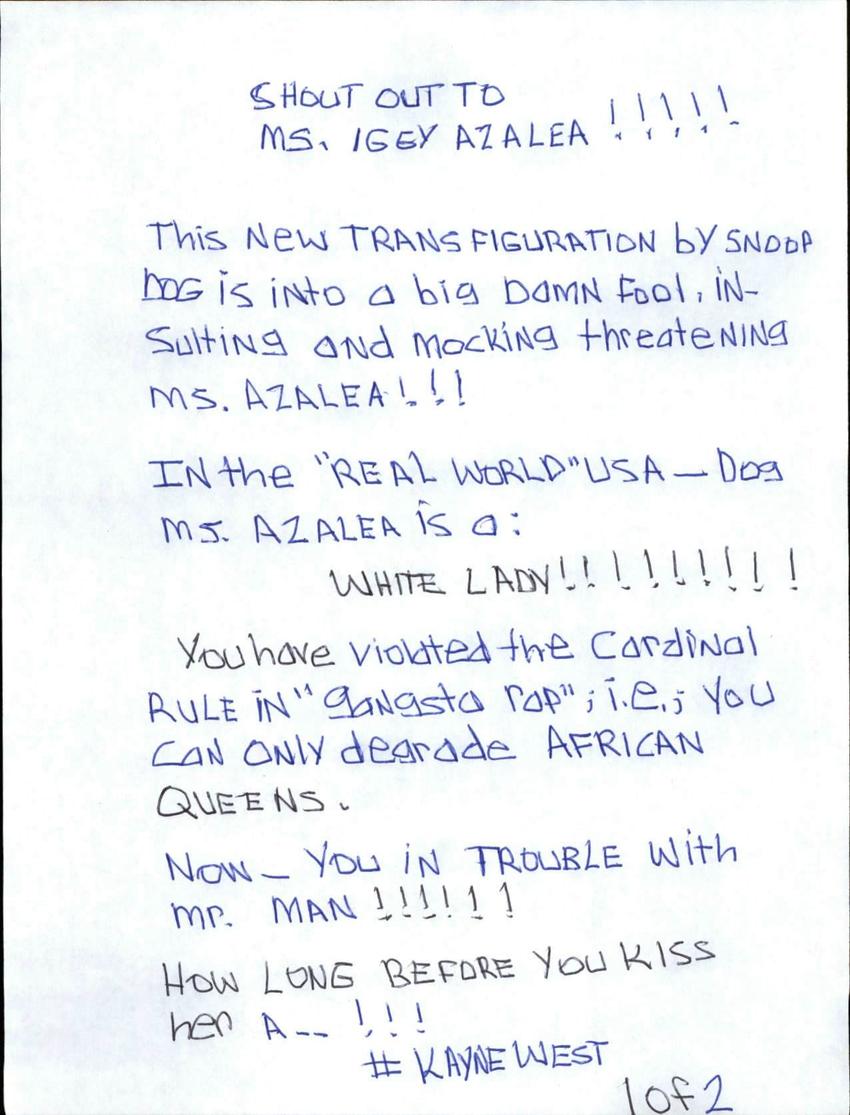 SHOUT OUT TO
MS. IGEY AZALEA !!!!!
This New TRANSFIGURATION by SNOOP
DOG is iNto a big DAMN Fool, iN-
Sulting aNd mocking threateNiNg
ms. AZALEA!!!
IN the "REAL WORLD" USA — Dog
ms. AZALEA is a:
WHITE LADY!!!!!!!!!
You have violated the CardiNal
RULE iN "gaNgsta rap"; i.e.; you
CAN ONLY degrade AFRICAN
QUEENS.
Now — You iN TROUBLE With
mr. MAN !!!!!!
HOW LONG BEFORE YOU KISS
her A-- !!!
# KAYNE WEST
1 of 2